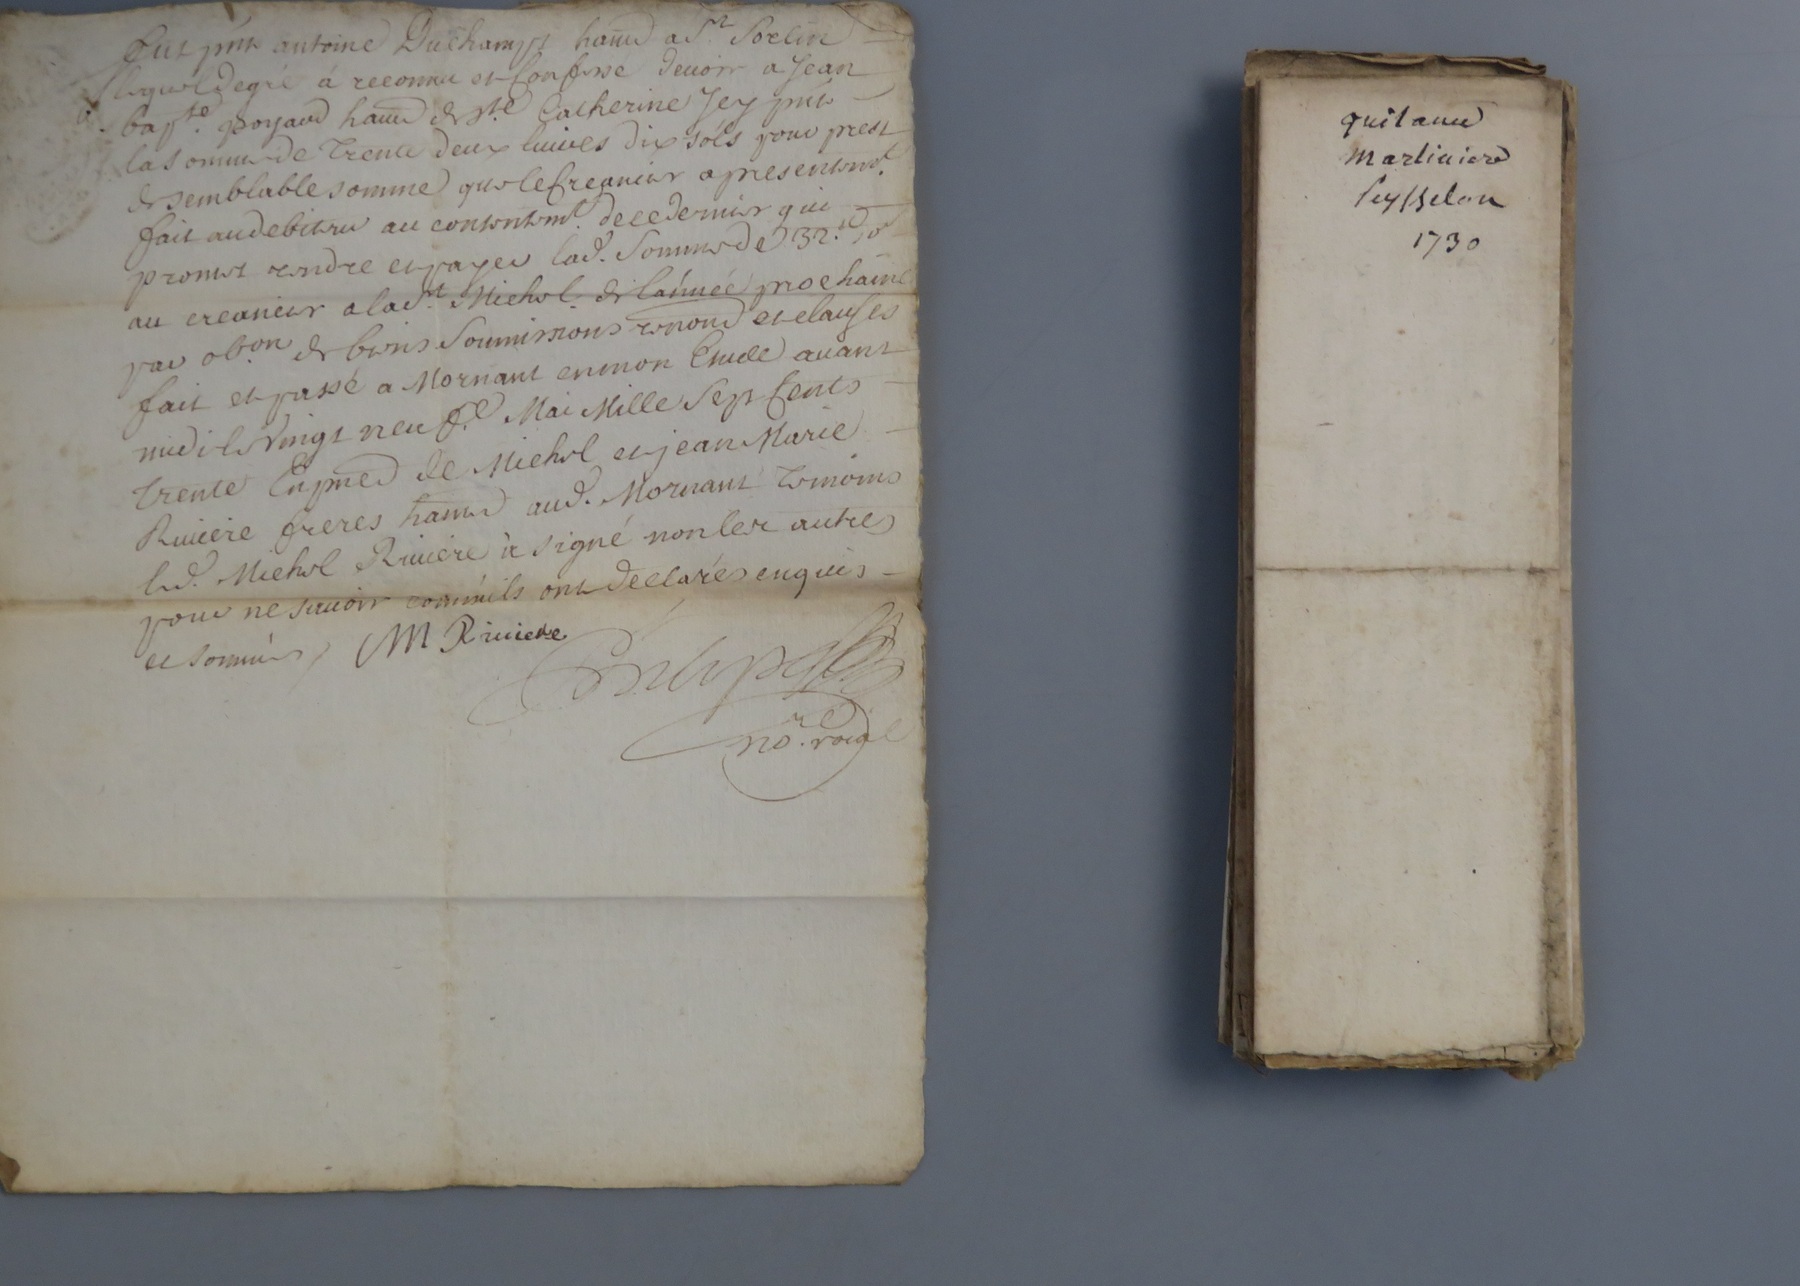 fut pnt antoine Duchampt hannt a St. Sorlin
lequel de gré à reconnu et Confessé devoir a Jean
bapte. poyard hannt de Ste Catherine Jcy pnt
la somme de trente deux livres dix sols pour prest
de semblable somme que le Creancier a presentemt.
fait au debiteur au contentemt. de ce dernier qui
promet rendre et payer lad. Somme de 32.
au creancier a la St Michel de lannée prochaine
par obon de biens Soumissions renond et clauses
fait et passé a Mornant en mon Etude avant
midi le Vingt neufe. Mai Mille Sept Cents
trente En pnce de Michel et jean Marie
Riviere freres hannt aud. Mornant temoins
led. Michel Riviere à signé non les autres
pour ne savoir comm'ils ont declarés enquis
et sommés M Riviere
nore. roial
quitance
Martiniere
Seysselon
1730